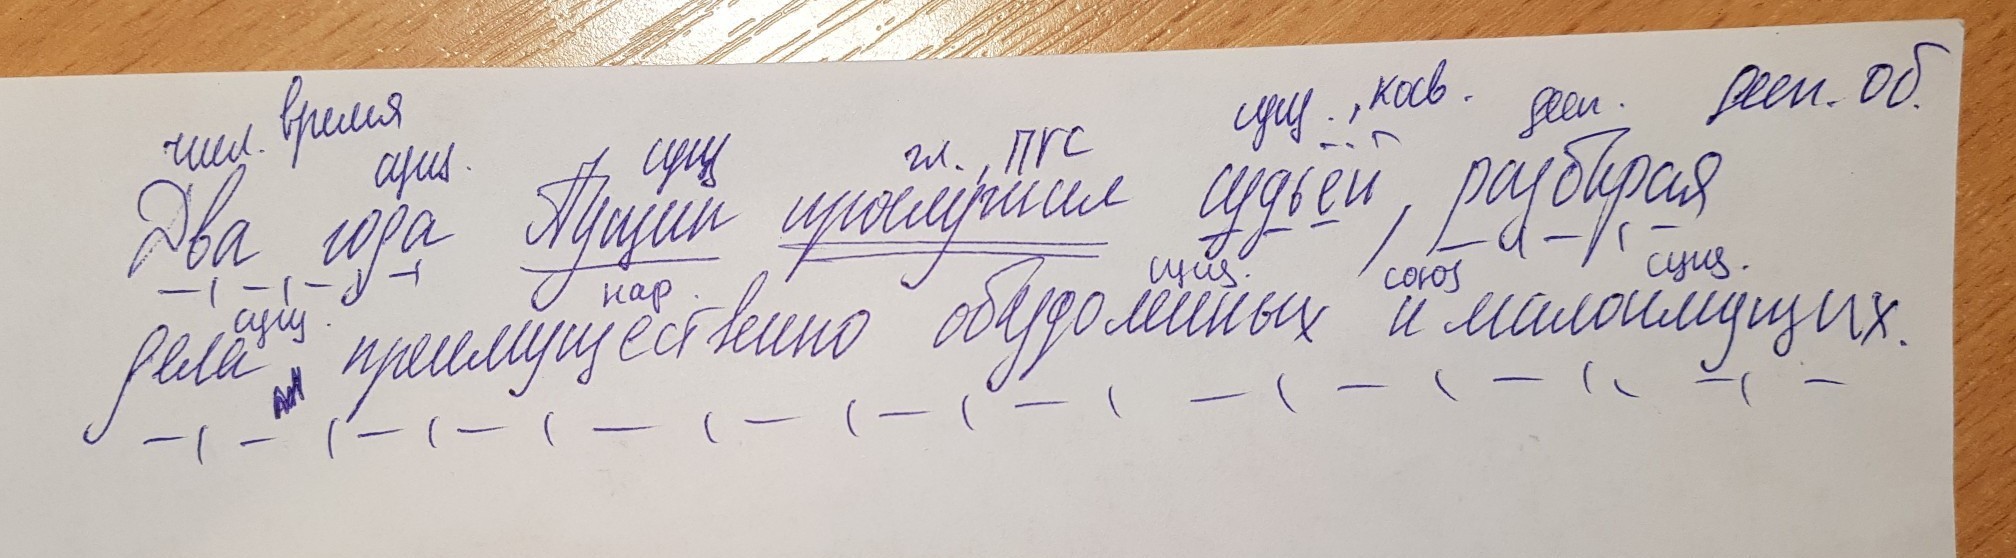 чис. время сущ. сущ гл., ПГС сущ., косв. дееп. дееп. об.
Два года Пущин прослужил судьей, разбирая
сущ. нар. сущ. союз сущ.
дела преимущественно обездоленных и малоимущих.